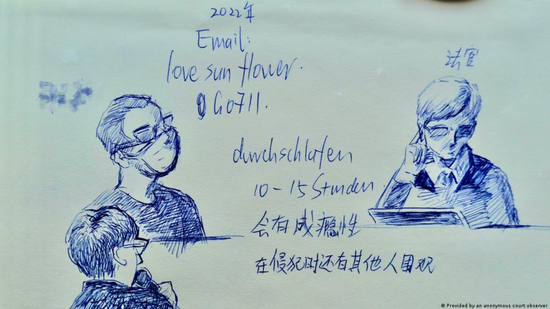 2022年
Email:
love sun flower.
Go711.
法官
durchschlafen
10-15 Stunden
会有成瘾性
在侵犯时还有其他人围观
Provided by an anonymous court observer